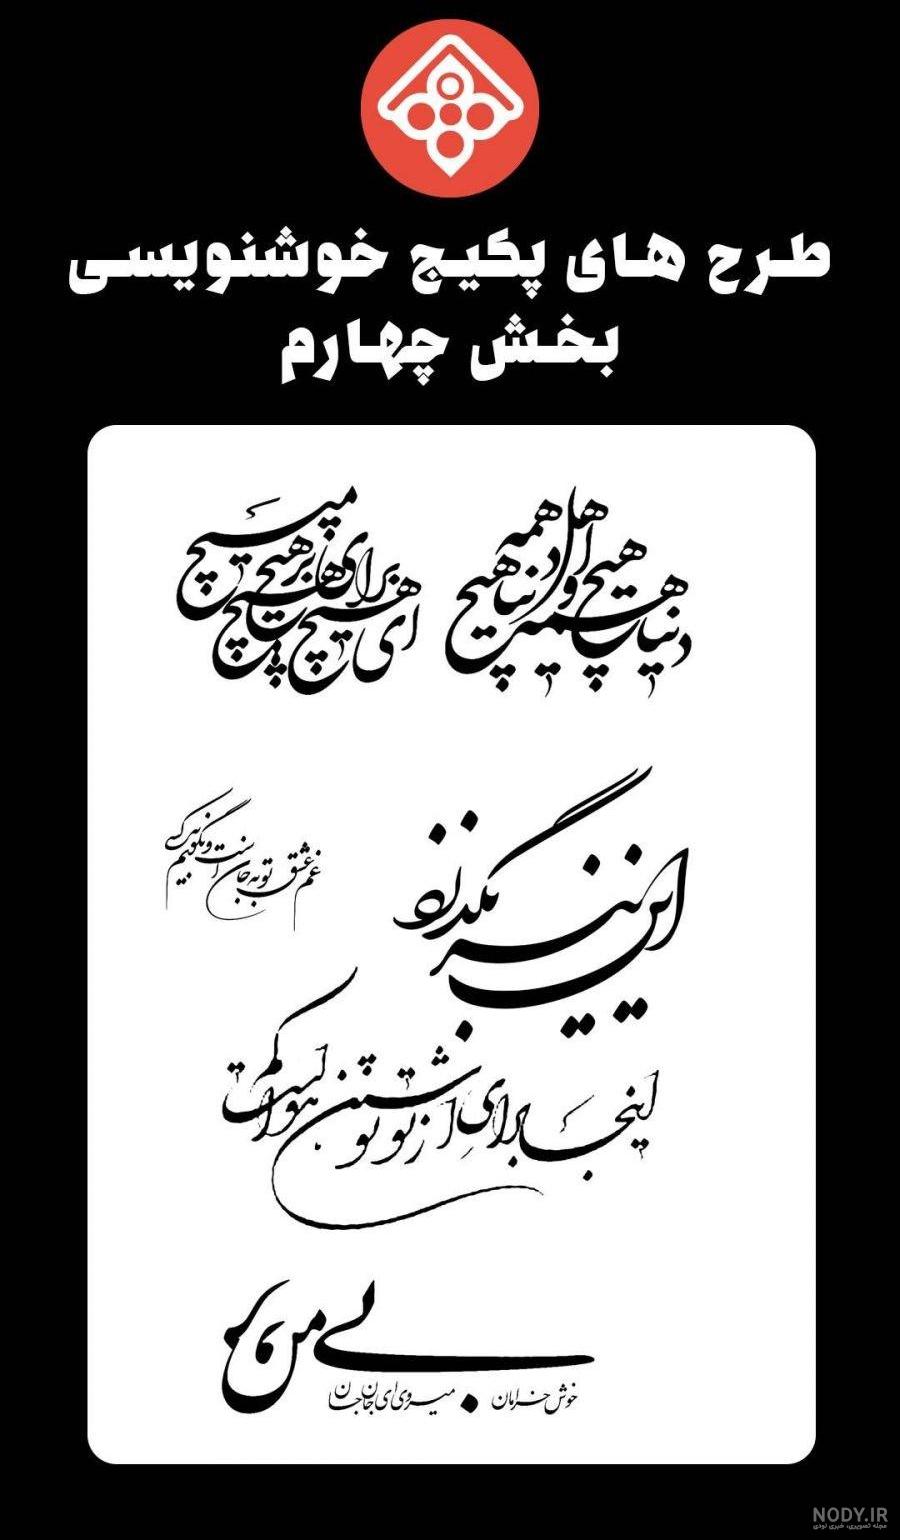 طرح های پکیج خوشنویسی
بخش چهارم
دنیا همه هیچ و اهل دنیا همه هیچ
ای هیچ برای هیچ بر هیچ مپیچ
این نیز بگذرد
غم عشق تو به جان است و نگویم به کسی
اینجا برای از تو نوشتن هوا کم است
بی من مرو
خوش خرامان میروی ای جان جان
NODY.IR
مجله تصویری، خبری نودی